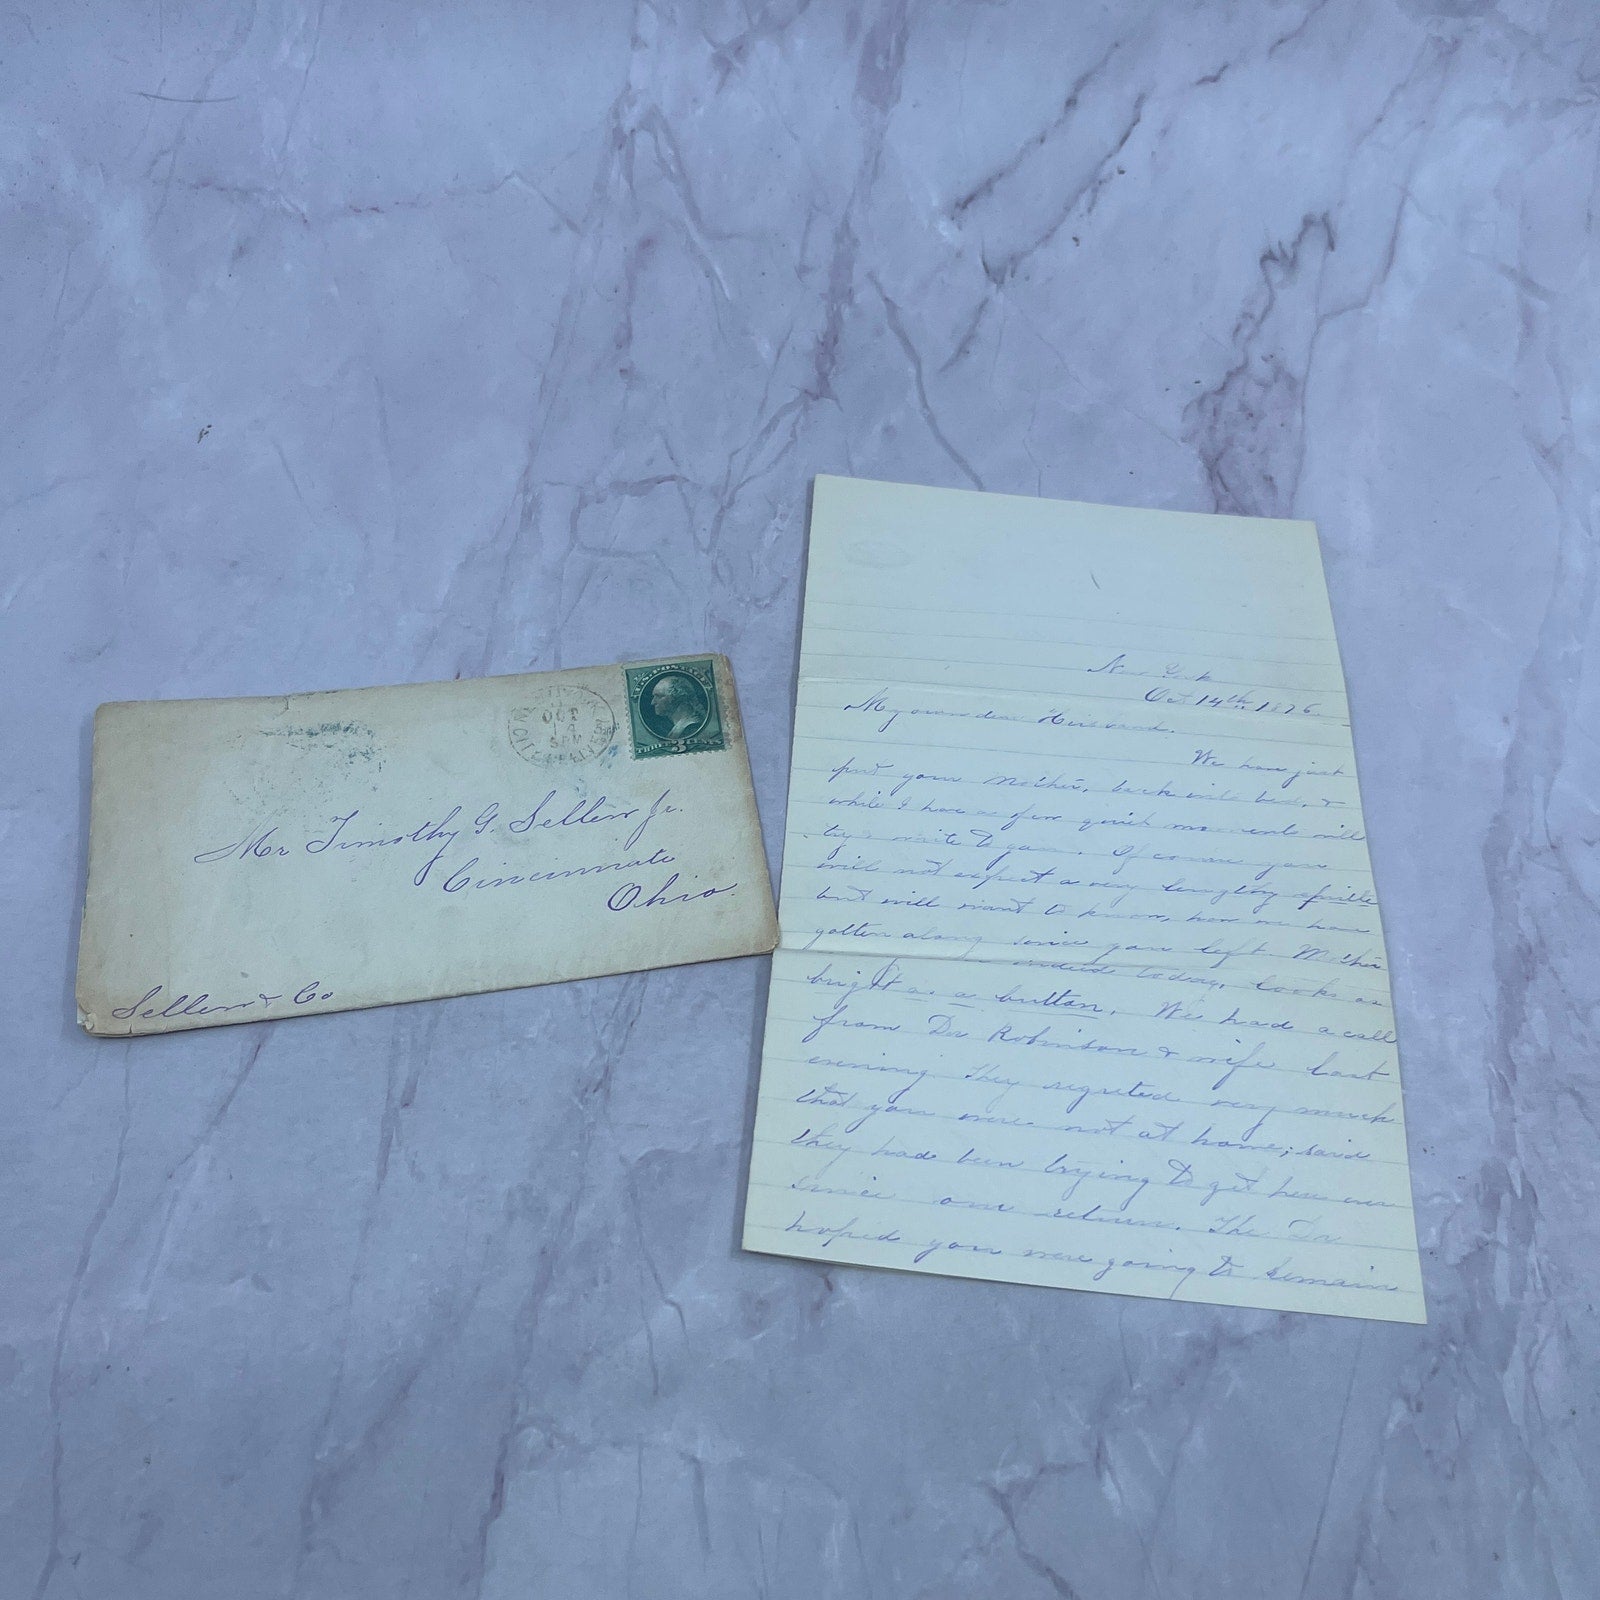 U.S. POSTAGE
THREE 3 CENTS
NEW YORK
OCT
14
5 PM
Mr Timothy G. Sellew Jr.
Cincinnati
Ohio.
Sellew & Co
New York
Oct 14th, 1876.
My own dear Husband.
We have just
put your Mother, back into bed, &
while I have a few quiet moments will
try & write to you. Of course you
will not expect a very lengthy epistle
but will want to know, how we have
gotten along since you left. Mother
indeed today, looks as
bright as a button. We had a call
from Dr Robinson & wife last
evening. They regreted very much
that you were not at home; said
they had been trying to get here ever
since our return. The Dr
hoped you were going to remain